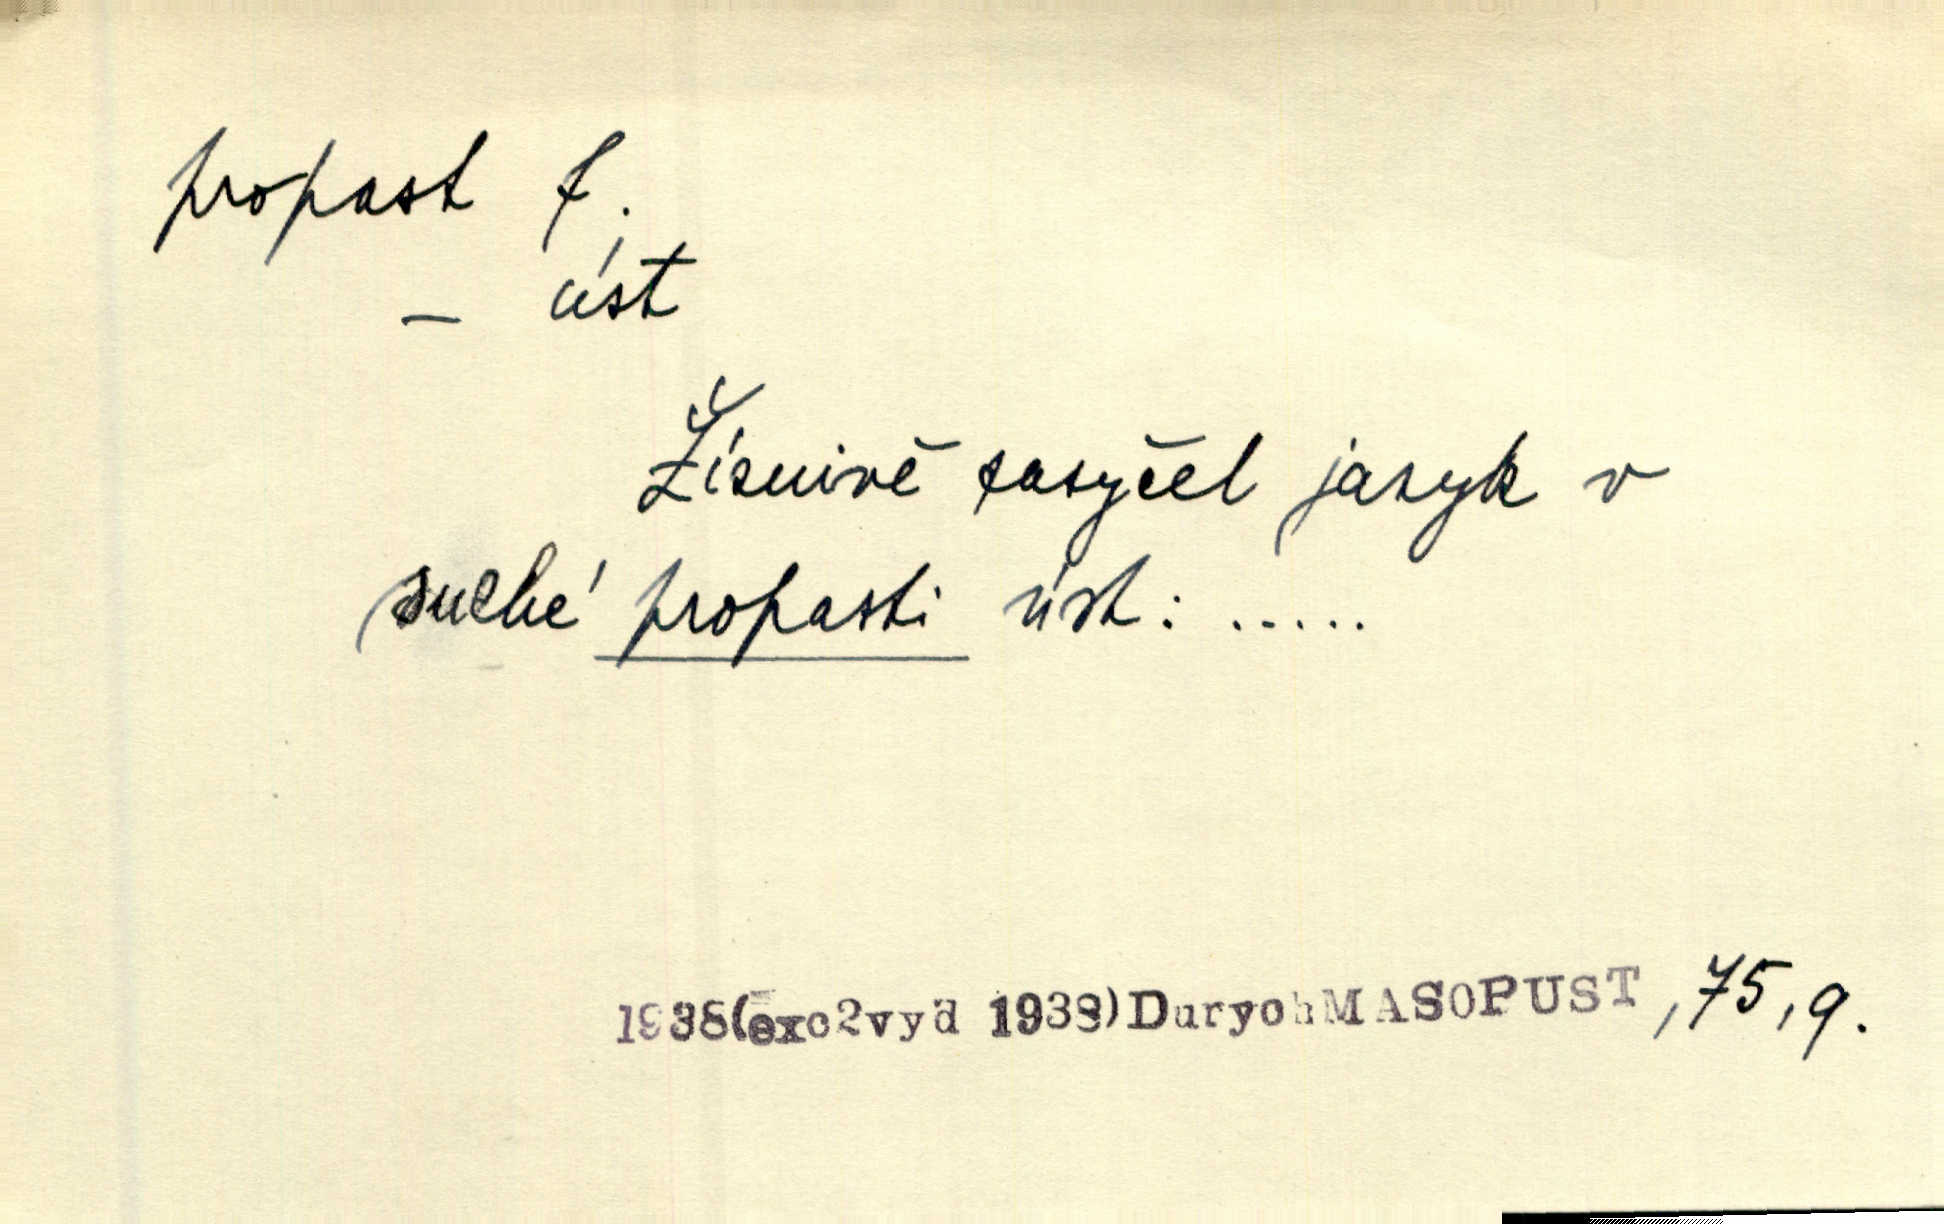 propast f.
– úst
Žíznivě zasyčel jazyk v
suché propasti úst: .....
1938(exc2vyd 1938)DurychMASOPUST, 75, 9.